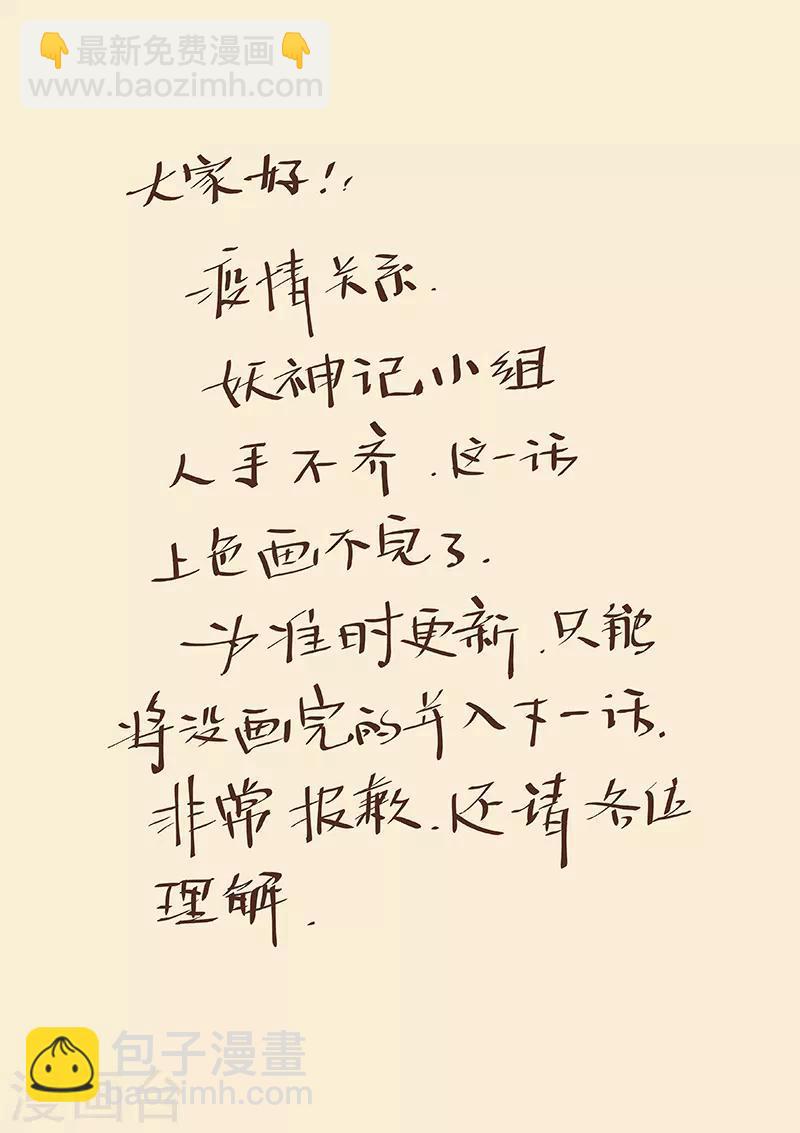 👇最新免费漫画👇
www.baozimh.com
大家好！！
疫情关系.
妖神记小组
人手不齐.这一话
上色画不完了.
为准时更新.只能
将没画完的并入下一话.
非常报歉.还请各位
理解.
包子漫畫
baozimh.com
漫画台